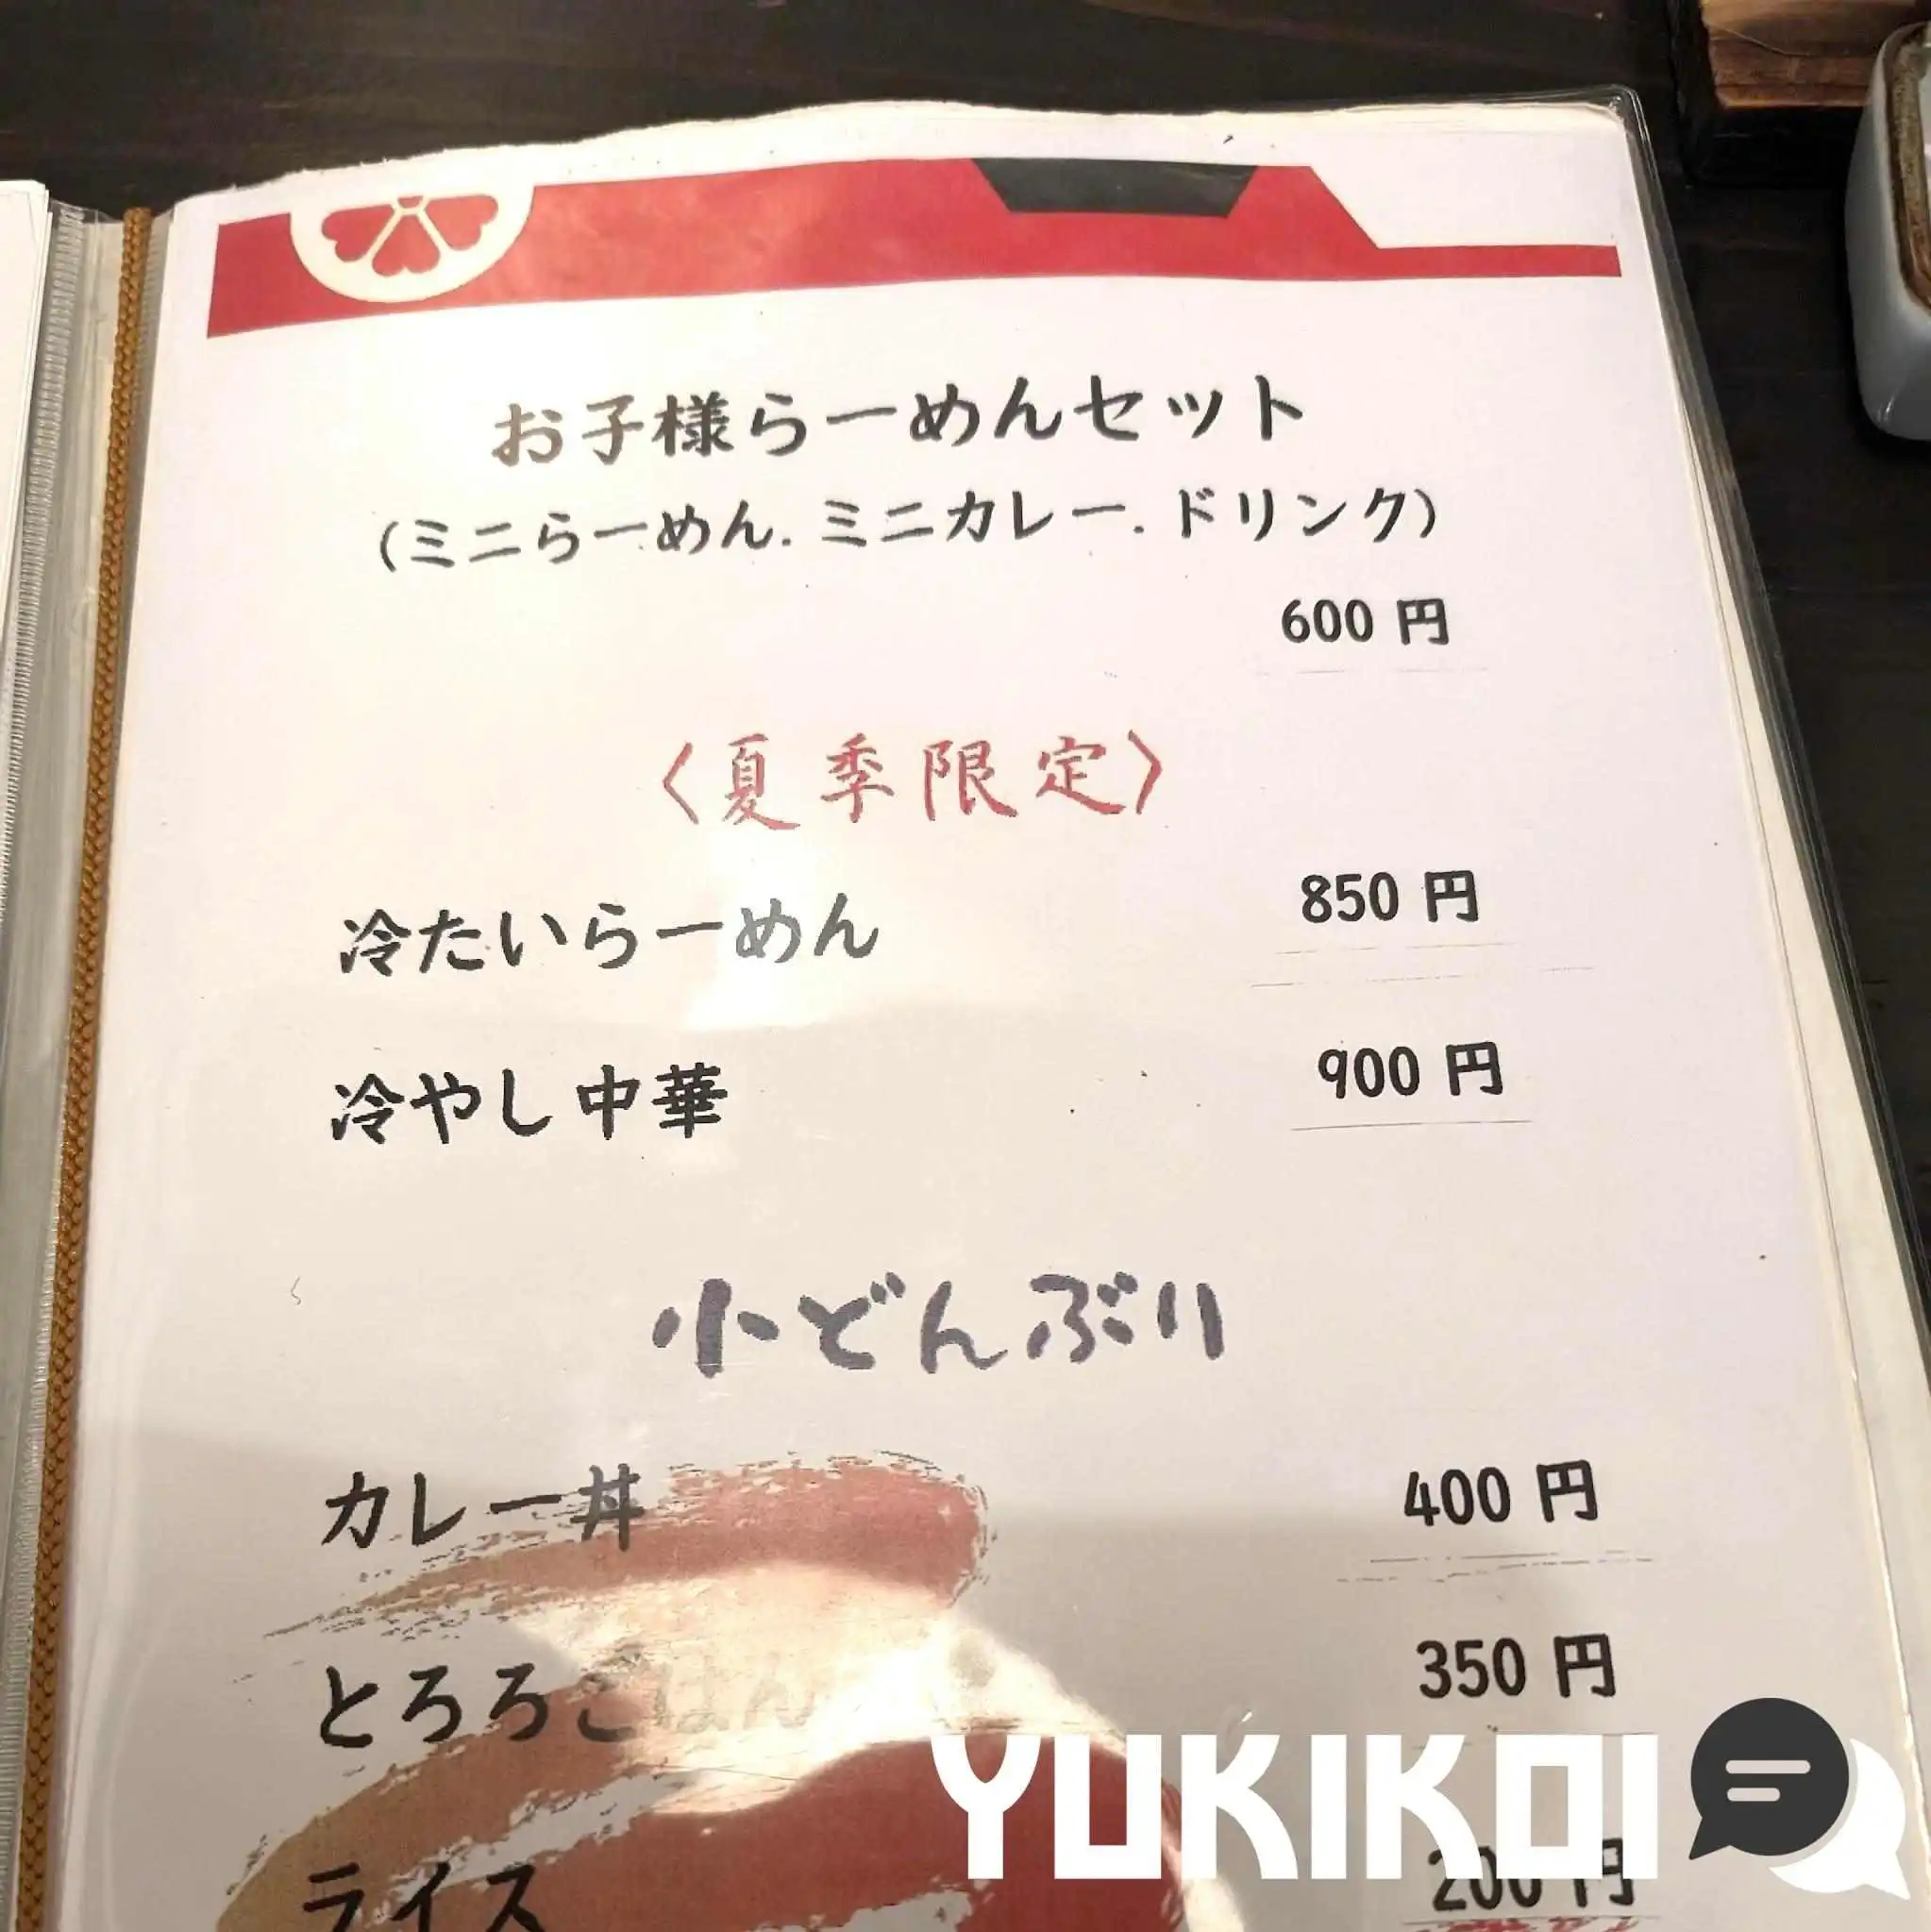 お子様らーめんセット
(ミニらーめん. ミニカレー. ドリンク)
600 円
〈夏季限定〉
冷たいらーめん 850 円
冷やし中華 900 円
小どんぶり
カレー丼 400 円
とろろごはん 350 円
ライス 200 円
YUKIKOI